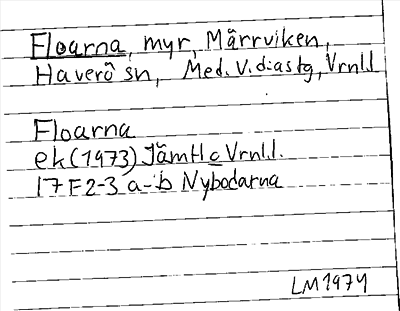 Floarna, myr, Märrviken,
Haverö sn, Med. V. diastg, Vrnl.l
Floarna
ek (1973) Jämtl o Vrnl.l.
17F2-3 a-b Nybodarna
LM1974